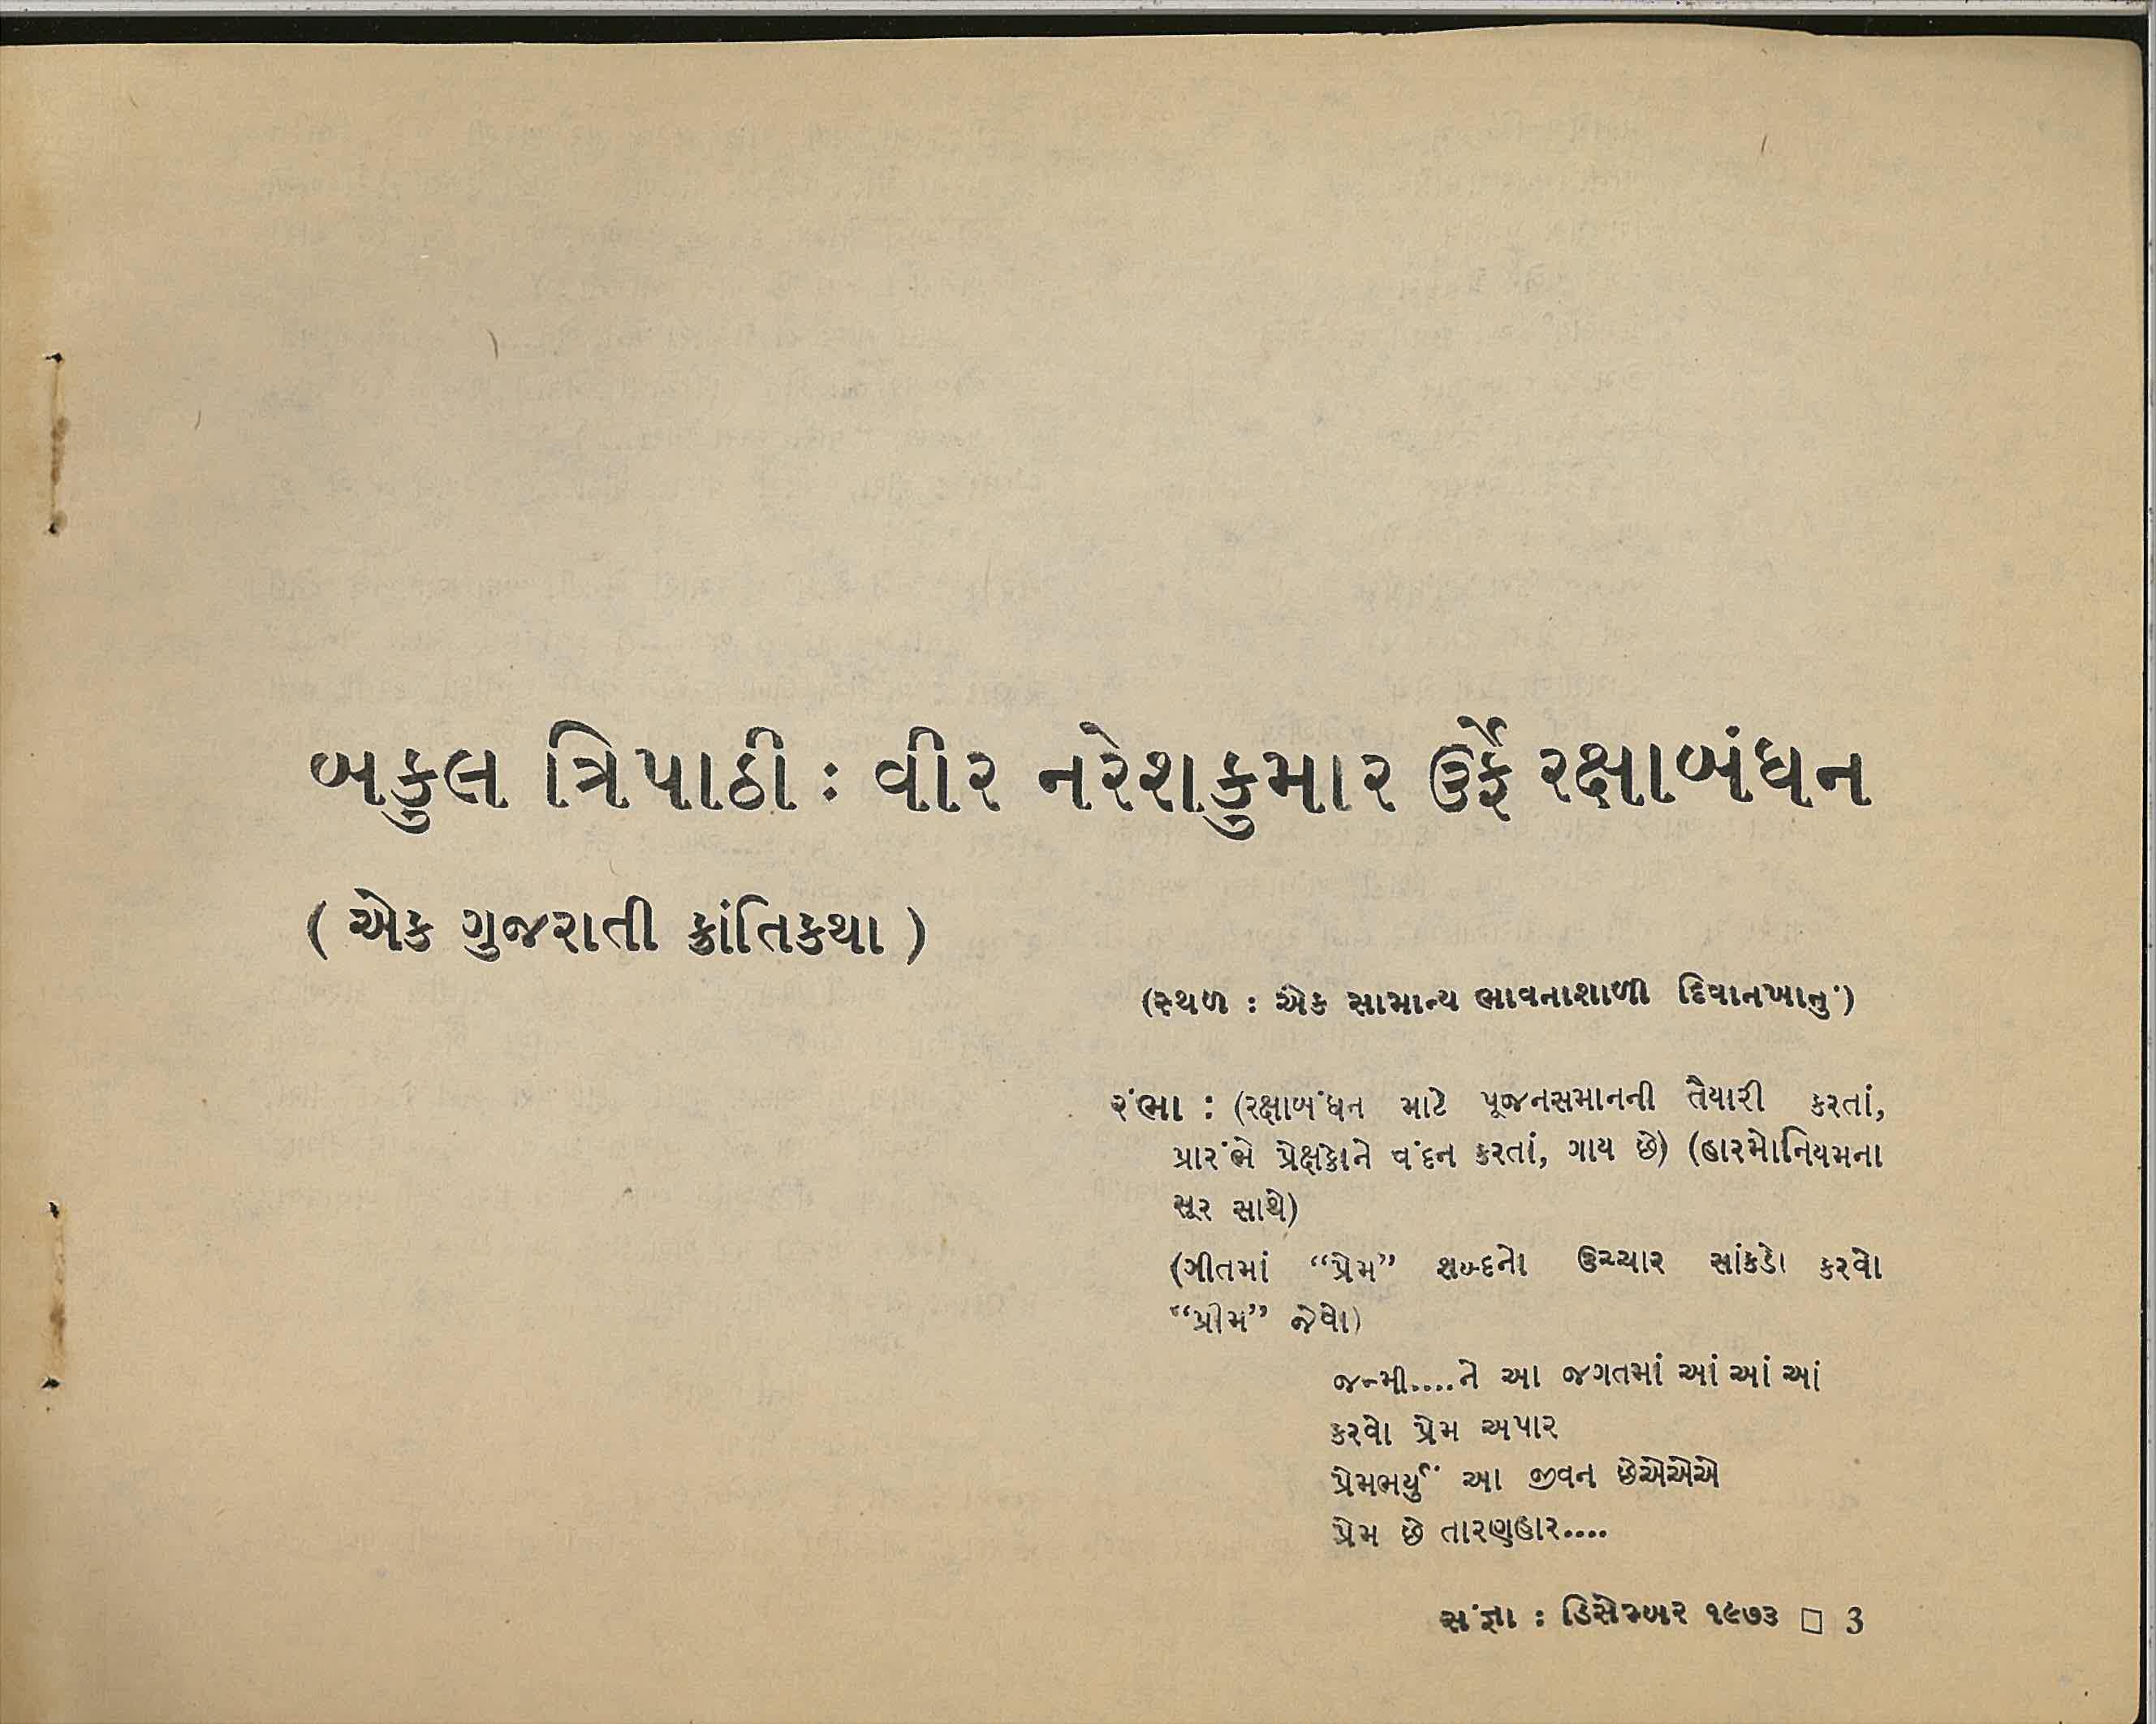 બકુલ ત્રિપાઠી : વીર નરેશકુમાર ઉર્ફે રક્ષાબંધન
( એક ગુજરાતી ક્રાંતિકથા )
(સ્થળ : એક સામાન્ય ભાવનાશાળી દિવાનખાનું)
રંભા : (રક્ષાબંધન માટે પૂજનસમાનની તૈયારી કરતાં,
પ્રારંભે પ્રેક્ષકોને વંદન કરતાં, ગાય છે) (હારમોનિયમના
સૂર સાથે)
(ગીતમાં “પ્રેમ” શબ્દનો ઉચ્ચાર સાંકડો કરવો
“પ્રીમ” જેવો)
જન્મી....ને આ જગતમાં આં આં આં
કરવો પ્રેમ અપાર
પ્રેમભર્યું આ જીવન છેએએએ
પ્રેમ છે તારણહાર....
સંજ્ઞા : ડિસેમ્બર ૧૯૭૩ □ 3